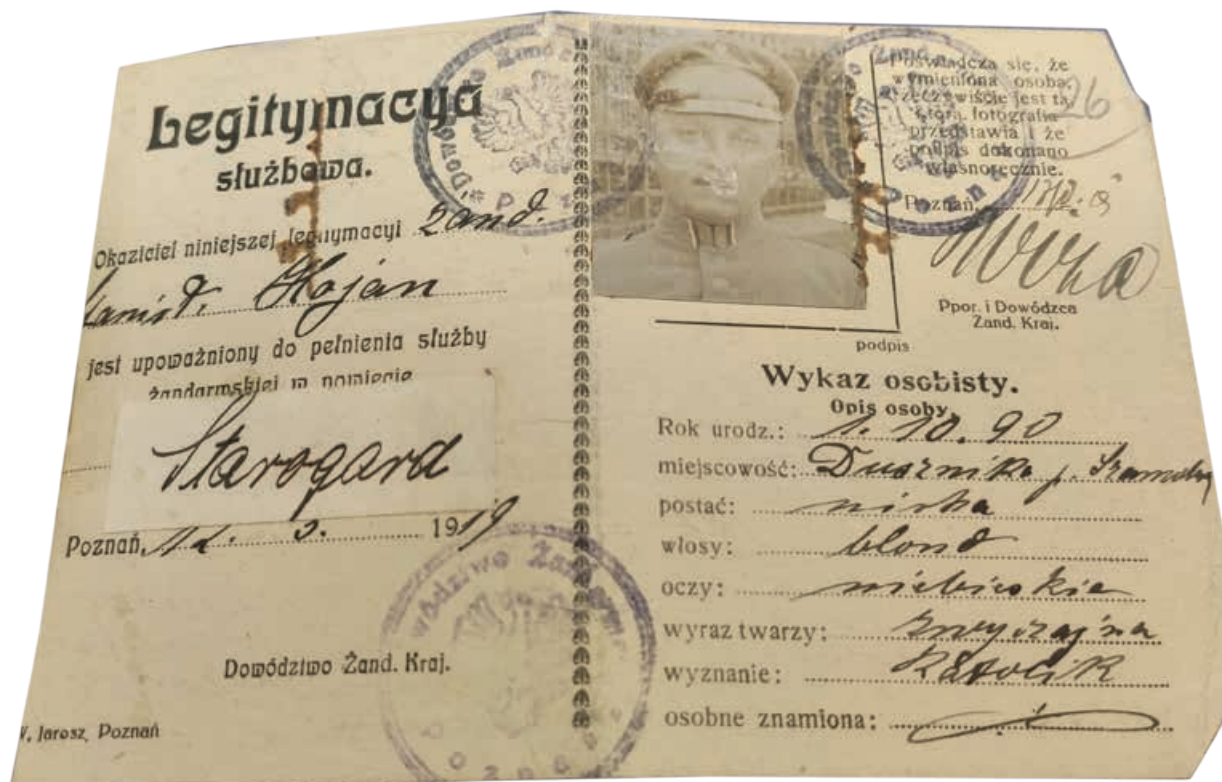 Legitymacya
służbowa.
Okaziciel niniejszej legitymacyi Żand.
Hojan
jest upoważniony do pełnienia służby
żandarmskiej w powiecie
Starogard
Poznań, 12. 3. 1919
Dowództwo Żand. Kraj.
W. Jarosz, Poznań
Poświadcza się, że
wymieniona osoba,
rzeczywiście jest tą,
którą fotografia
przedstawia i że
podpis dokonano
własnoręcznie.
26
Poznań
Ppor. i Dowódzca
Żand. Kraj.
podpis
Wykaz osobisty.
Opis osoby.
Rok urodz.: 1. 10. 90
miejscowość: Duszniki p. Szamotuły
postać: niska
włosy: blond
oczy: niebieskie
wyraz twarzy: zwyczajna
wyznanie: Katolik
osobne znamiona: